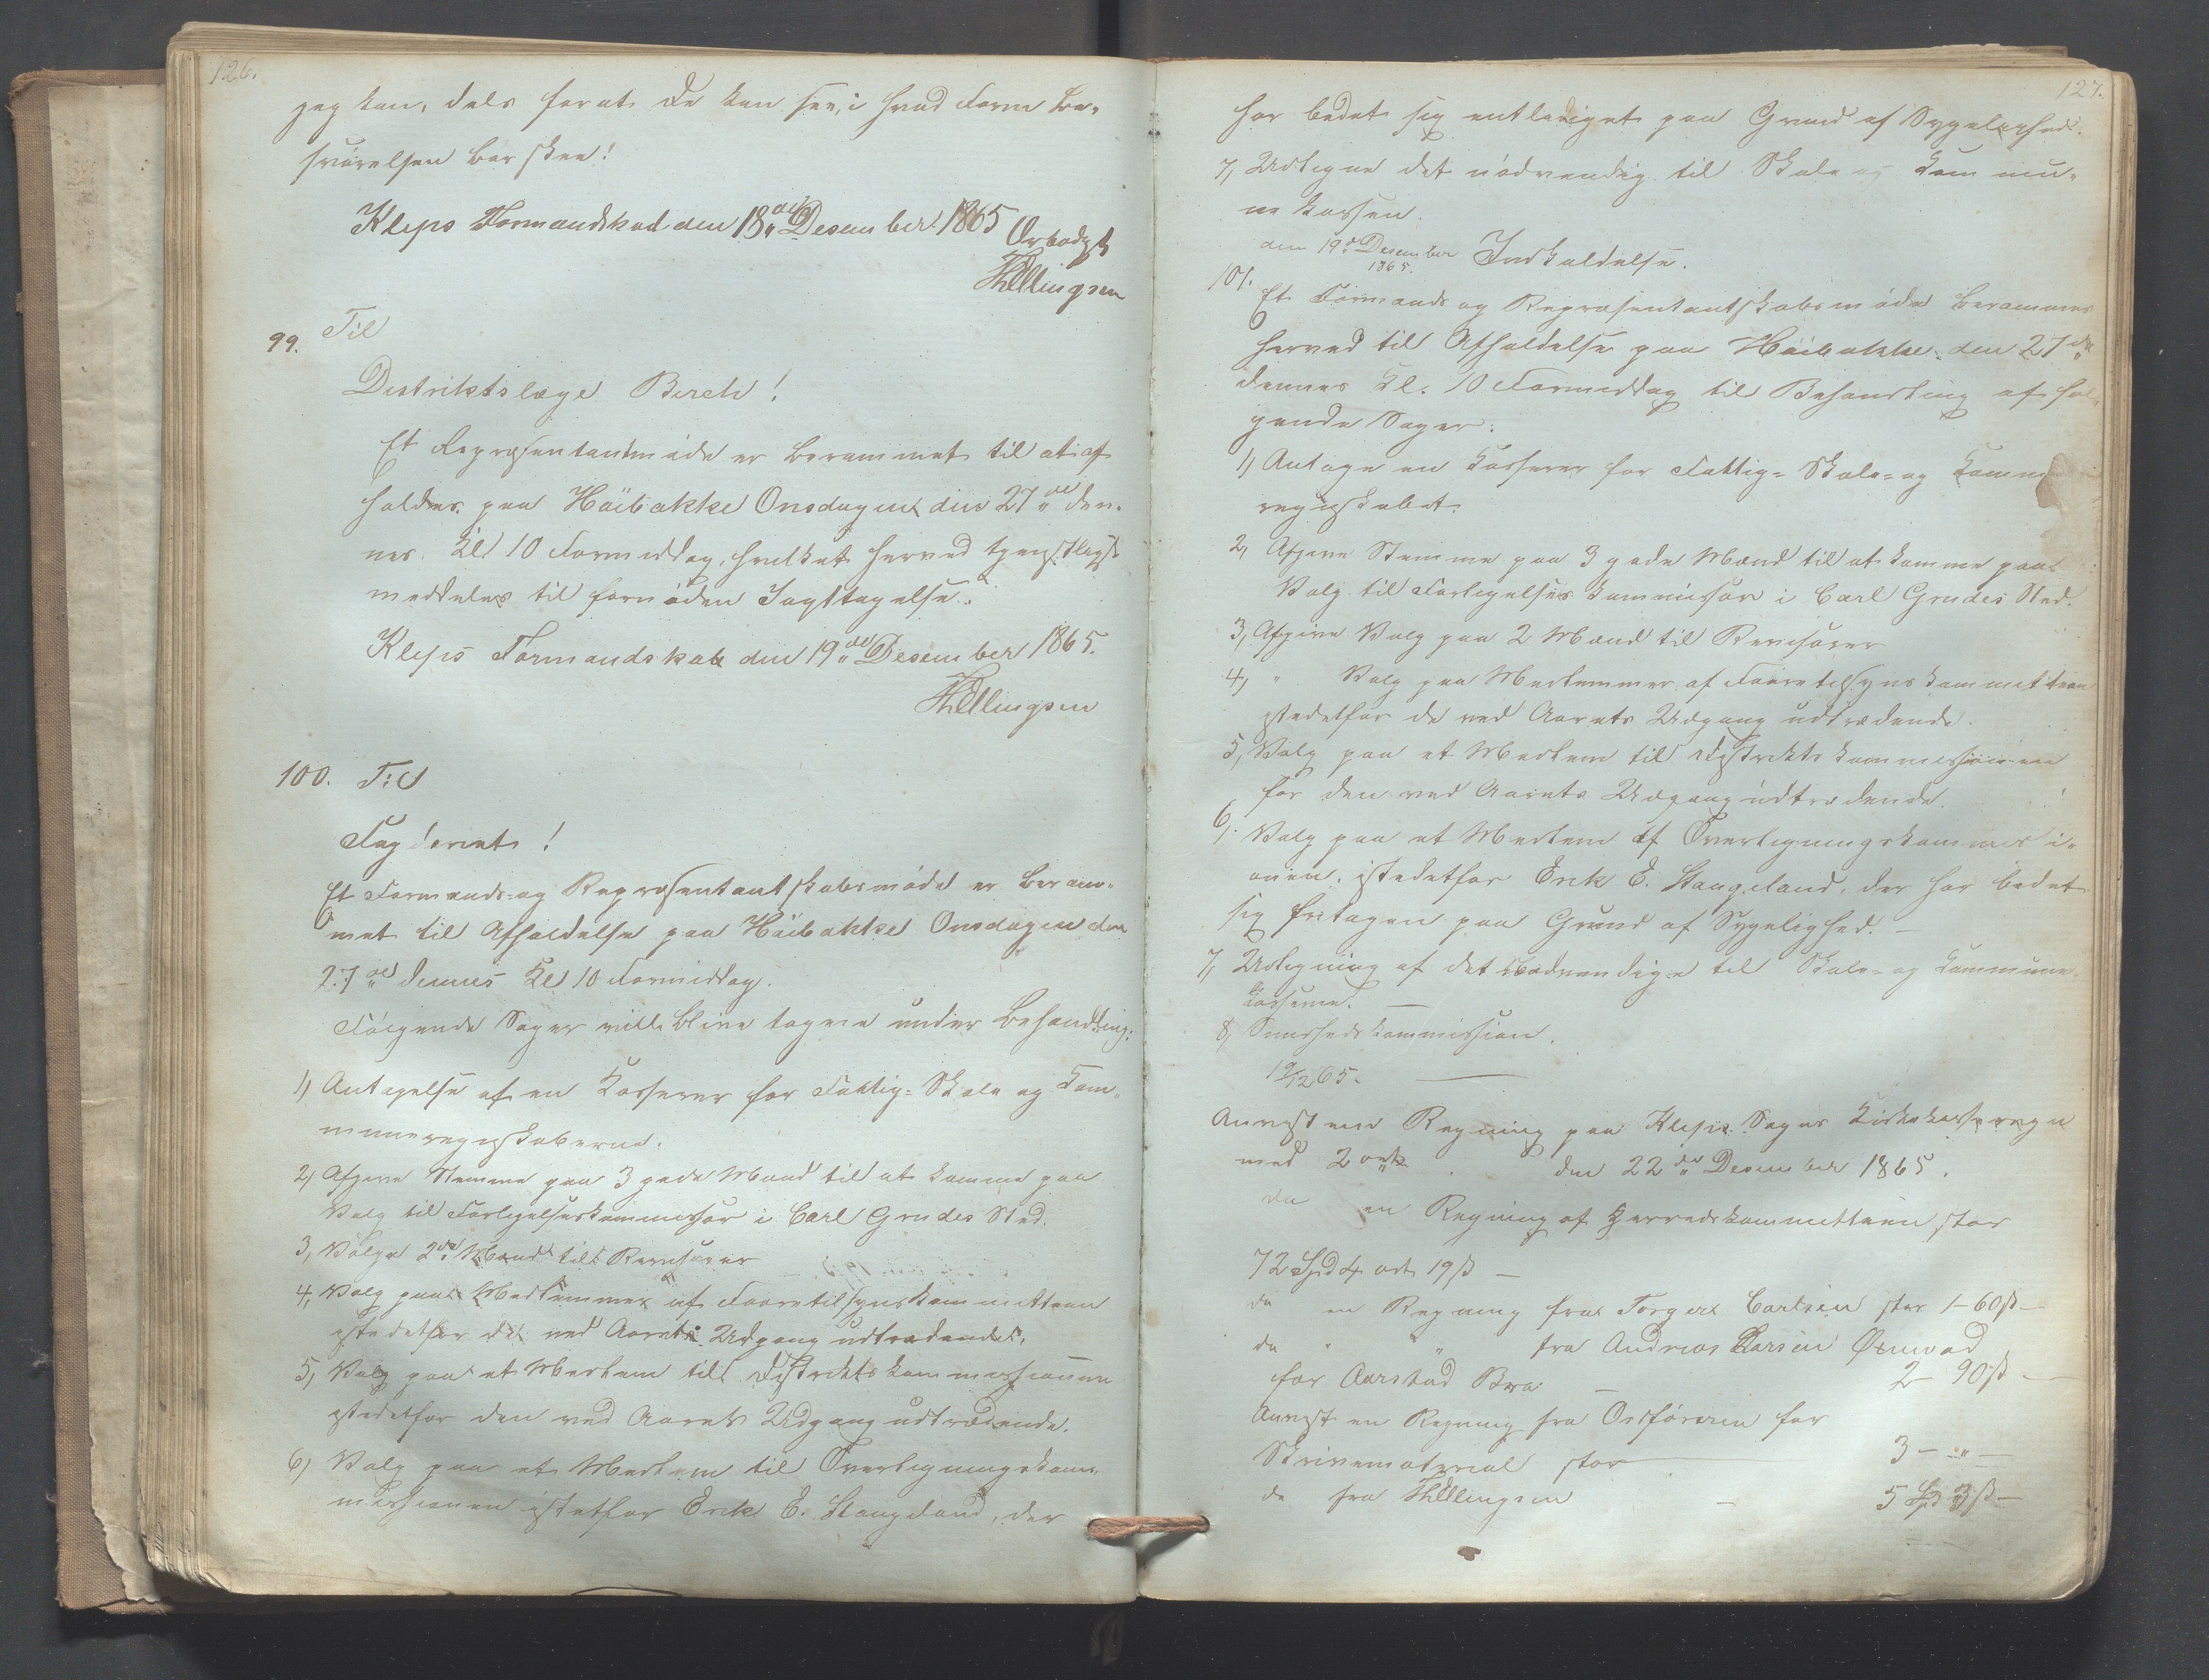 126.
jeg kan, dels forat De kan see, i hvad Form Be-
svarelsen bør skee!
Kleps Formandskab den 18de Desember 1865
Ærbødigst
TEllingsen
99. Til
Distriktslæge Birch!
Et Repræsentantmøde er berammet til at af
holdes paa Häibakke Onsdagen den 27de den-
nes Kl 10 Formiddag, hvilket herved tjenstligst
meddeles til fornøden Iagttagelse.
Kleps Formandskab den 19de Desember 1865.
TEllingsen
100. Til
Fogderiet!
Et Formands- og Repræsentantskabsmøde er beram-
met til Afholdelse paa Häibakke Onsdagen den
27de dennes Kl 10 Formiddag.
Følgende Sager ville blive tagne under Behandling:
1, Antagelse af en Kasserer for Fattig- Skole og Kom-
muneregnskaberne.
2, Afgive Stemme paa 3 gode Mænd til at komme paa
Valg til Forligelseskommissær i Carl Grudes Sted.
3, Vælge 2de Mænd til Revisorer
4, Valg paa Medlemmer af Faaretilsynskommitteen
istedetfor de ved Aarets Udgang udtrædende.
5, Valg paa et Medlem til Distriktskommissionen
istedetfor den ved Aarets Udgang udtrædende.
6, Valg paa et Medlem til Overligningskom-
missionen istetfor Erik E. Stangeland, der
127.
har bedet sig entlediget paa Grund af Sygelighed.
7, Udligne det nødvendig til Skole og Kommu-
ne Kassen.
den 19de Desember Indkaldelse.
1865.
101.
Et Formands og Repræsentantskabsmøde berammes
herved til Afholdelse paa Häibakke den 27de
dennes Kl. 10 Formiddag til Behandling af føl-
gende Sager:
1, Antage en Kasserer for Fattig- Skole- og Komm
regnskabet.
2, Afgive Stemme paa 3 gode Mænd til at komme paa
Valg til Forligelses kommissær i Carl Grudes Sted.
3, Afgive Valg paa 2 Mænd til Revisorer
4, " Valg paa Medlemmer af Faaretilsynskommitteen
istedetfor de ved Aarets Udgang udtrædende.
5, Valg paa et Medlem til Distriktskommissionen
for den ved Aarets Udgang udtrædende.
6, Valg paa et Medlem af Overligningskommissi-
onen, istedetfor Erik E. Stangeland, der har bedet
sig fritagen paa Grund af Sygelighed. —
7, Udligning af det nødvendige til Skole- og Kommune
Kasserne. —
8, Sundhedskommission.
19/12 65.
Anvist en Regning paa Kleps Sogns Kirkekasse
med 2 ort. den 22de Desember 1865.
do en Regning af Herredskommitteen stor
72 Spd 4 ort 19 ß —
do en Regning fra Torger Carlsen stor 1 - 60 ß —
do " " fra Andreas Larsen
for Aarstad Bro — 2 - 90 ß —
Anvist en Regning fra Ordføreren for
Skrivematerial stor 3 — " —
do fra TEllingsen — 5 Spd 3 ß —